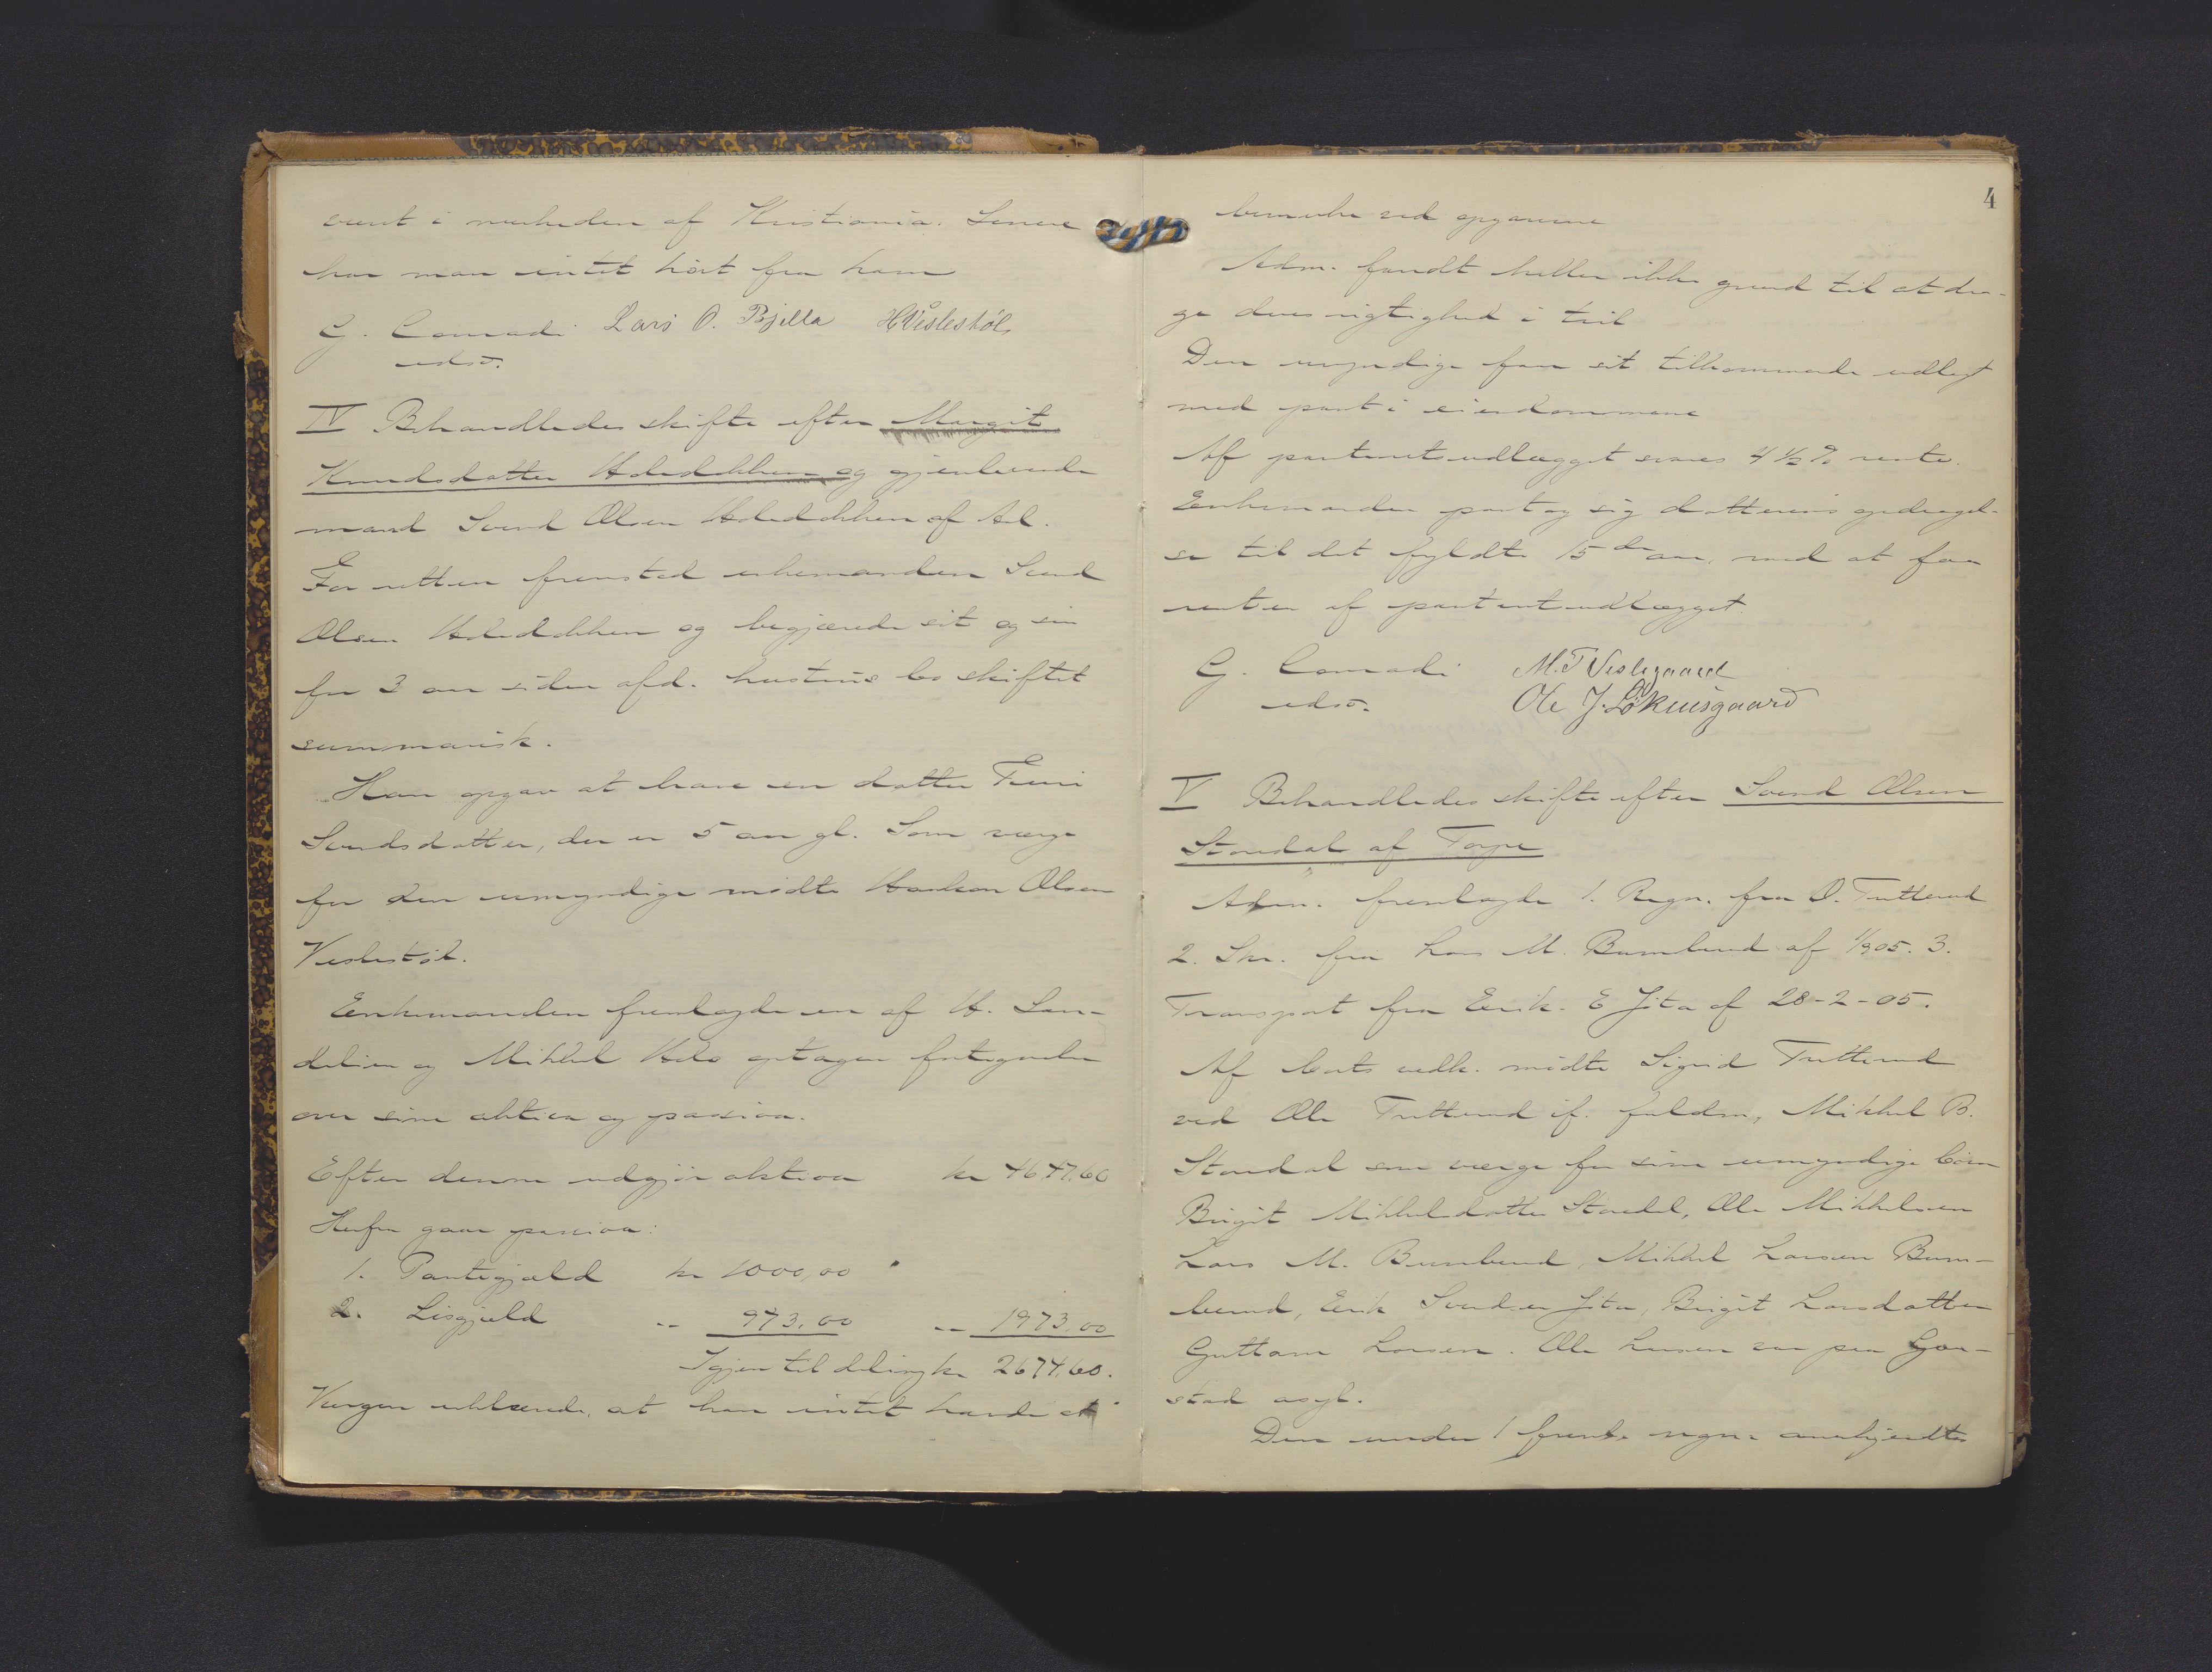 været i nærheden af Kristiania. Senere
har man intet hørt fra ham
G. Conradi Lars O. Bjella HVeslestøl
udso.
IV Behandledes skifte efter Margit
Knudsdatter og gjenlevende
mand Svend Olsen af Aal.
For retten fremstod enkemanden Svend
Olsen og begjærede sit og sin
for 3 aar siden afd. hustrus bo skiftet
summarisk.
Han opgav at have en datter
Svendsdatter, der er 5 aar gl. Som værge
for den umyndige mødte Haakon Olsen
Veslestøl.
Enkemanden fremlagde en af H. San-
delien og Mikkel optagen fortegnelse
over sine aktiva og passiva.
Efter denne udgjør aktiva kr 4647.60
Herfra gaar passiva:
1. Pantegjæld kr 1000,00
2. Løsgjæld -- 973.00 -- 1973.00
Igjen til deling kr 2674.60.
Værgen erklærede, at han intet havde at
4
bemærke ved opgaverne
Adm. fandt heller ikke grund til at dra-
ge deres rigtighed i tvil
Den umyndige faar sit tilkommende udlagt
med pant i eiendommene
Af panteretsudlægget svares 4 ½ % rente.
Enkemanden paatog sig datterens opdragel-
se til det fyldte 15de aar, mod at faa
renten af panteretsudlægget.
G. Conradi M. T Veslegaard
udso. Ole J. Løkensgaard
V Behandledes skifte efter Svend Olsen
Stondal af Torpe
Adm. fremlagde 1. Regn. fra O. Tutterud
2. Skr. fra Lars M. Bumlund af 1/3 05. 3.
Transport fra Erik. E af 28-2-05.
Af boets vedk. mødte Sigrid Tutterud
ved Ole Tutterud if. fuldm, Mikkel B.
Stondal som værge for sine umyndige børn
Birgit Mikkelsdatter Stondal, Ole Mikkelsen
Lars M. Bumlund, Mikkel Larsen Bum-
lund, Erik Svendsen Birgit Larsdatter
Guttorm Larsen. Ole Larsen var paa Gau-
stad asyl.
Den under 1 fremls. regn. anerkjendtes